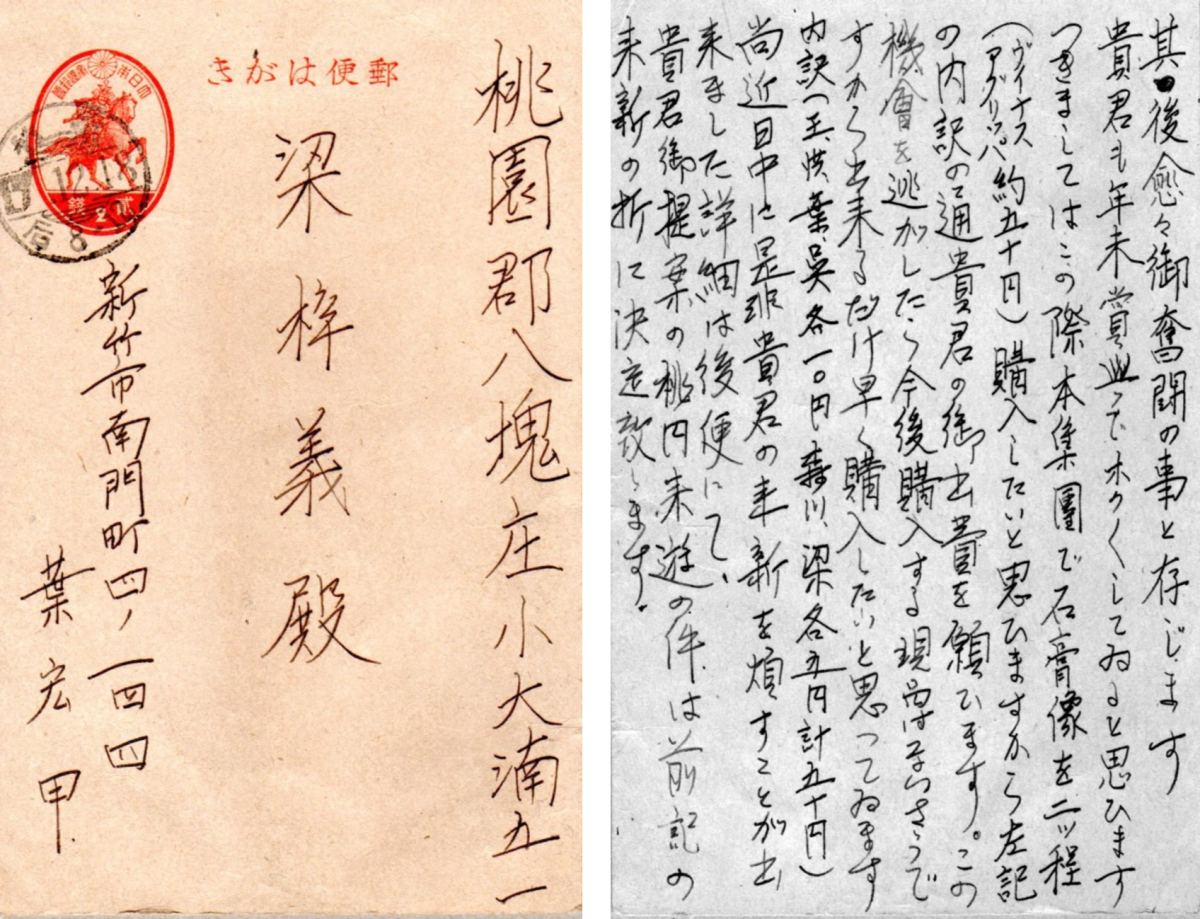 郵便はがき
大日本帝國郵便
貳錢
12.1.13
后8
桃園郡八塊庄小大湳五一
梁梓義殿
新竹市南門町四ノ一四四
葉宏甲
其後愈々御奮闘の事と存じます
貴君も年末賞与でホクくしてゐると思ひます
つきましてはこの際本集團で石膏像を二ッ程
(ヴイナス アグリッパ 約五十円)購入したいと思ひますから左記
の内訳の通貴君の御出費を願ひます。この
機會を逃がしたら今後購入する現品はなささうで
すから出来るだけ早く購入したいと思ってゐます
内訳(王、洪、葉、呉各一〇円 森川、梁各五円計五十円)
尚近日中に是非貴君の来新を煩すことが出
来ました詳細は後便にて、
貴君御提案の桃円来遊の件は前記の
来新の折に決定致します。